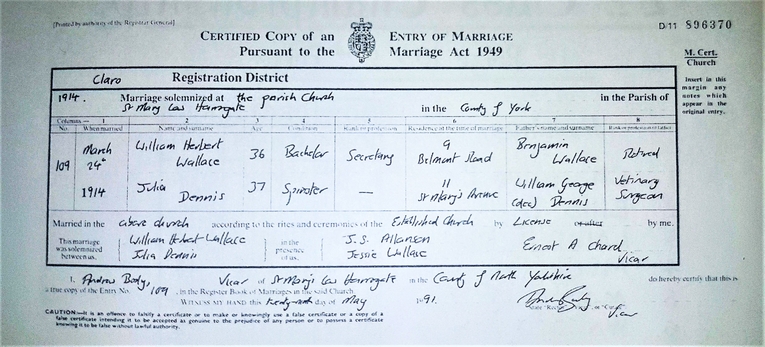 [Printed by authority of the Registrar General]
D 11 896370
CERTIFIED COPY of an ENTRY OF MARRIAGE
Pursuant to the Marriage Act 1949
M. Cert.
Church
Insert in this
margin any
notes which
appear in the
original entry.
Claro Registration District
1914. Marriage solemnized at the parish Church in the Parish of
St Mary Low Harrogate in the County of York
Columns:— 1 2 3 4 5 6 7 8
No. When married Name and surname Age Condition Rank or profession Residence at the time of marriage Father's name and surname Rank or profession of father
109 March 24th 1914
William Herbert Wallace 36 Bachelor Secretary 9 Belmont Road Benjamin Wallace Retired
Julia Dennis 37 Spinster — 11 St Mary's Avenue William George (dec) Dennis Vetinary Surgeon
Married in the above church according to the rites and ceremonies of the Established Church by License or after by me.
This marriage was solemnized between us,
William Herbert Wallace
Julia Dennis
in the presence of us,
J.S. Allanson
Jessie Wallace
Ernest A Chard
Vicar
I, Andrew Body, Vicar of St Mary's Low Harrogate in the County of North Yorkshire do hereby certify that this is
a true copy of the Entry No. 109, in the Register Book of Marriages in the said Church.
WITNESS MY HAND this day of May 1991.
Vicar
CAUTION:—It is an offence to falsify a certificate or to make or knowingly use a false certificate or a copy of a
false certificate intending it to be accepted as genuine to the prejudice of any person or to possess a certificate
knowing it to be false without lawful authority.